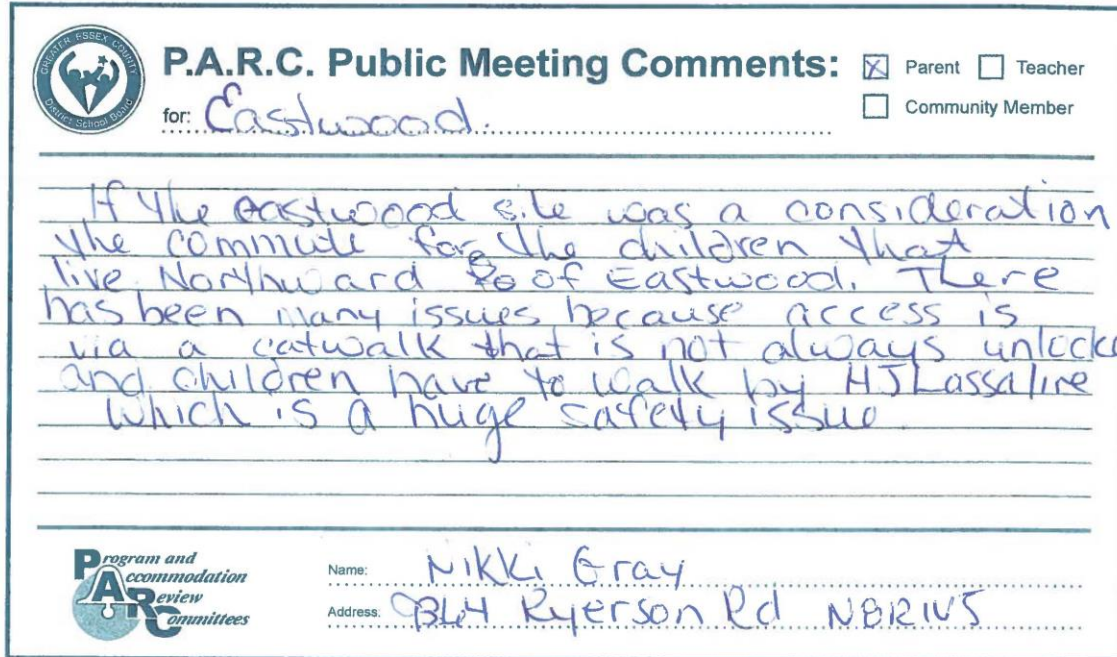 GREATER ESSEX COUNTY
District School Board
P.A.R.C. Public Meeting Comments:
Parent
Teacher
Community Member
for: Eastwood.
If the eastwood site was a consideration
the commute for the children that
live Northward of Eastwood. There
has been many issues because access is
via a catwalk that is not always unlocke
and children have to walk by HJLassaline
which is a huge safety issue
Program and
Accommodation
Review
Committees
Name: Nikki Gray
Address: 9364 Ryerson Rd N8R1V5